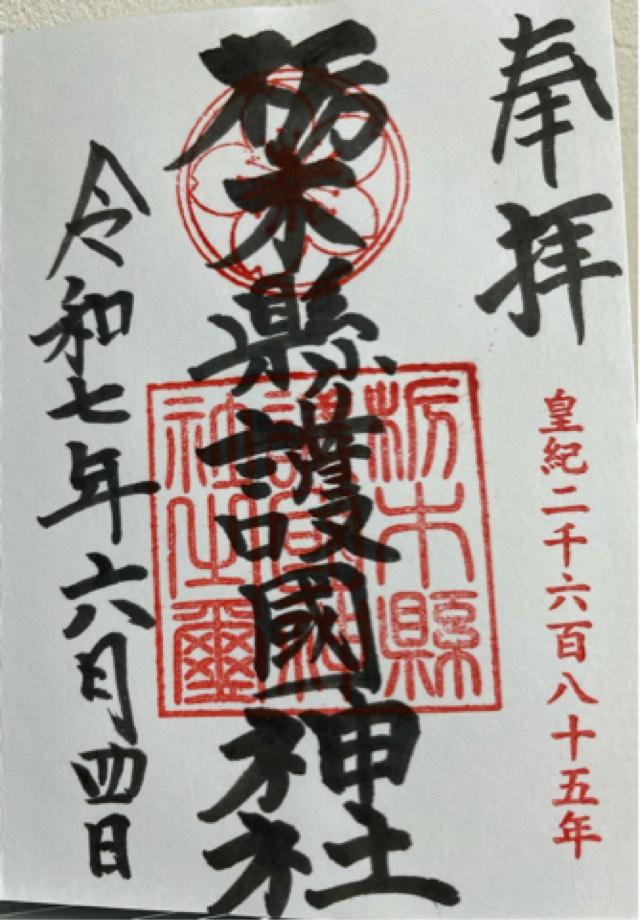 奉拝
皇紀二千六百八十五年
栃木縣護國神社
栃木縣
護國神
社之璽
令和七年六月四日